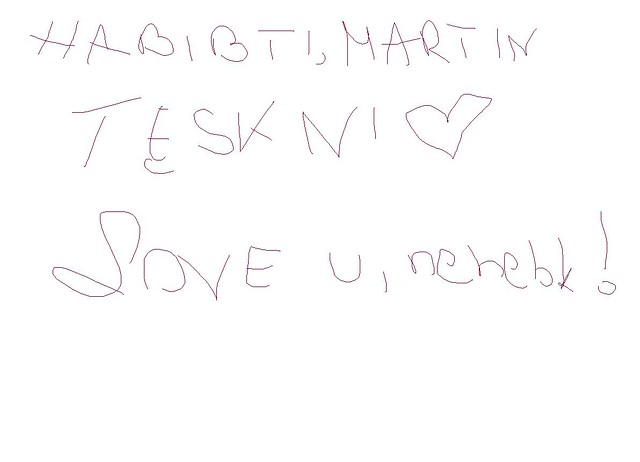 HABIBTI, MARTIN
TĘSKNI ♡
LOVE U, nehebk!